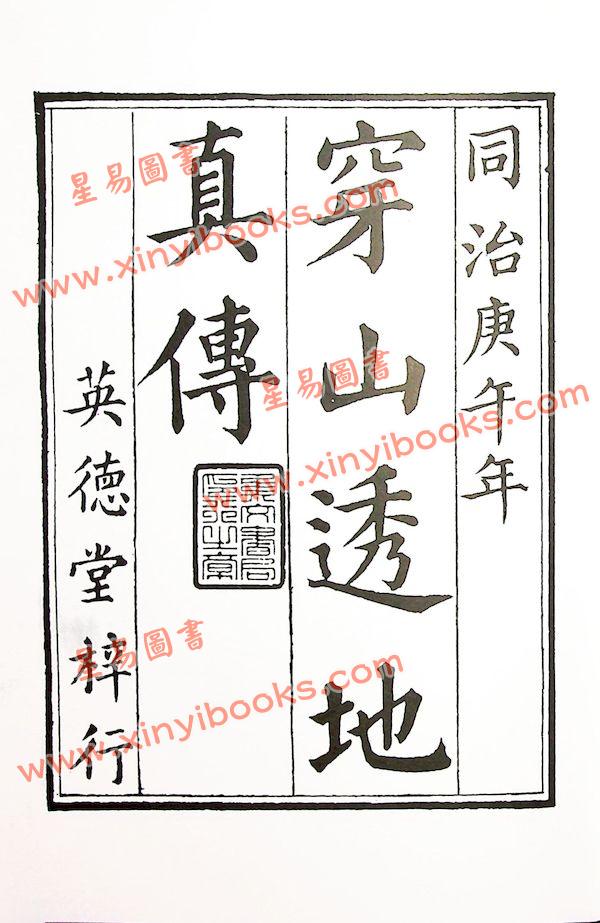 同治庚午年
穿山透地
真傳
文書局
印行之章
英德堂梓行
星易圖書
www.xinyibooks.com
星易圖書
www.xinyibooks.com
星易圖書
www.xinyibooks.com